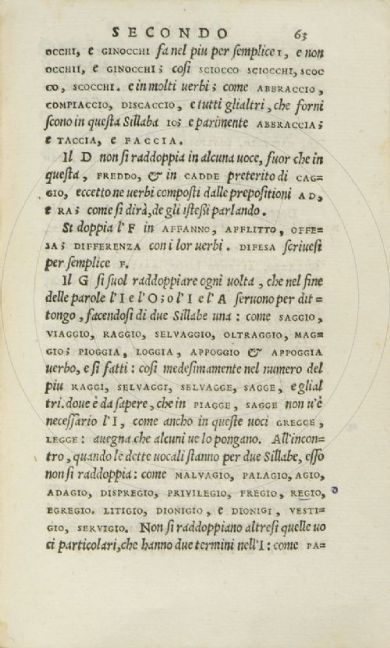 SECONDO 63
OCCHI, e GINOCCHI fa nel piu per semplice I, e non
OCCHII, e GINOCCHI; così SCIOCCO SCIOCCHI, SCOC
CO, SCOCCHI. e in molti uerbi; come ABBRACCIO,
COMPIACCIO, DISCACCIO, e tutti glialtri, che forni
scono in questa Sillaba IO; e parimente ABBRACCIA;
e TACCIA, e FACCIA.
Il D non si raddoppia in alcuna uoce, fuor che in
questa, FREDDO, & in CADDE preterito di CAG=
GIO, eccetto ne uerbi composti dalle prepositioni AD,
e RA; come si dirà, de gli istessi parlando.
Si doppia l'F in AFFANNO, AFFLITTO, OFFE=
SA; DIFFERENZA con i lor uerbi. DIFESA scriuesi
per semplice F.
Il G si suol raddoppiare ogni uolta, che nel fine
delle parole l'I e l'O; o l'I e l'A seruono per dit=
tongo, facendosi di due Sillabe una: come SAGGIO,
VIAGGIO, RAGGIO, SELVAGGIO, OLTRAGGIO, MAG=
GIO; PIOGGIA, LOGGIA, APPOGGIO & APPOGGIA
uerbo, e sì fatti: così medesimamente nel numero del
piu RAGGI, SELVAGGI, SELVAGGE, SAGGE, e glial
tri. doue è da sapere, che in PIAGGE, SAGGE non u'è
necessario l'I, come ancho in queste uoci GREGGE,
LEGGE: auegna che alcuni ue lo pongano. All'incon=
tro, quando le dette uocali stanno per due Sillabe, esso
non si raddoppia: come MALVAGIO, PALAGIO, AGIO,
ADAGIO, DISPREGIO, PRIVILEGIO, FREGIO, REGIO,
EGREGIO. LITIGIO, DIONIGIO, e DIONIGI, VESTI=
GIO, SERVIGIO. Non si raddoppiano altresì quelle uo
ci particolari, che hanno due termini nell'I: come PA=